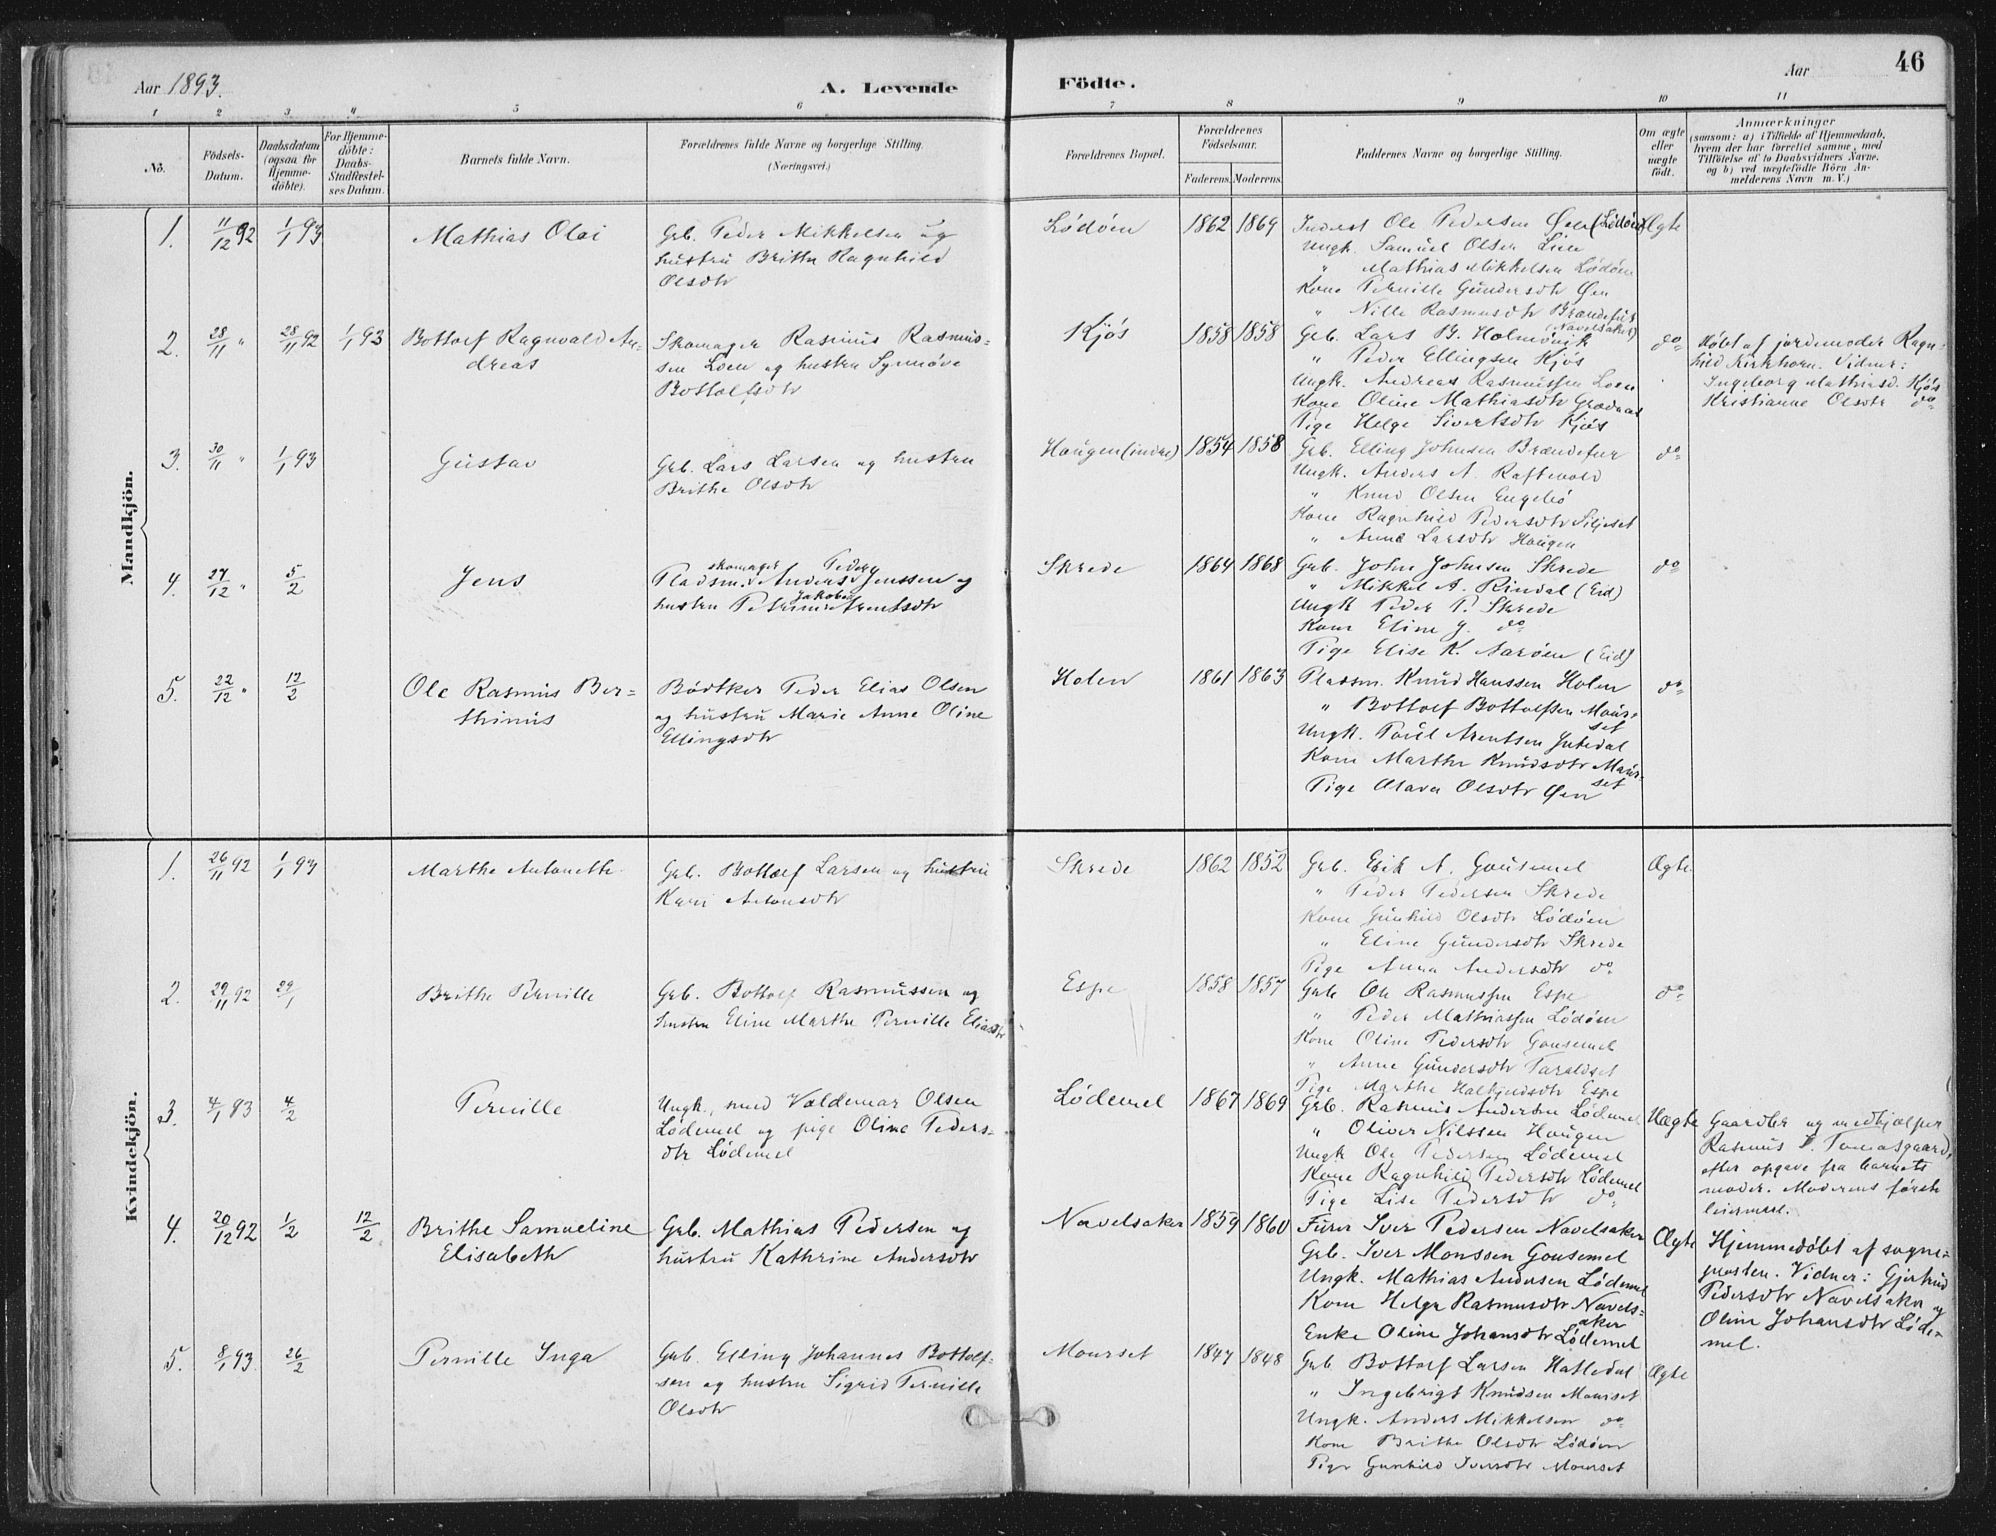 46
Aar 1893.
A. Levende
Födte.
Aar
1 2 3 4 5 6 7 8 9 10 11
No.
Födsels-Datum.
Daabsdatum (ogsaa for Hjemme-döbte).
For Hjemme-döbte: Daabs-Stadfæstel-ses Datum.
Barnets fulde Navn.
Forældrenes fulde Navne og borgerlige Stilling.
(Næringsvei.)
Forældrenes Bopæl.
Forældrenes Födselsaar.
Faderens. Moderens.
Faddernes Navne og borgerlige Stilling.
Om ægte eller uægte födt.
Anmærkninger
(saasom: a) i Tilfælde af Hjemmedaab,
hvem der har forrettet samme, med
Tilföielse af to Daabsvidners Navne,
og b) ved uægtefödte Börn An-
melderens Navn m. V.)
Mandkjön.
1. 11/12 92 1/1 93
Mathias Olai
Grb. Peder Mikkelsen og
hustru Brithe Ragnhild
Olsdtr
Lödöen
1862 1869
Inderst Ole Pedersen Øen (Lödöen)
Ungk. Samuel Olsen Lien
" Mathias Mikkelsen Lödöen
Kone Pernille Gundersdtr Øen
" Nille Rasmusdtr Brændefur
Ægte
2. 28/11 " 28/11 92 1/1 93
Bottolf Ragnvald An-
dreas
Skomager Rasmus Rasmus-
sen Loen og hustru Synnöve
Bottolfsdtr
Kjös
1858 1858
Grb. Lars B. Holmövik (Navelsaker)
" Peder Ellingsen Kjös
Ungk. Andreas Rasmussen Loen
Kone Oline Mathiasdtr Grodaas
Pige Helge Sivertsdtr Kjös
do
Döbt af jordemoder Ragn-
hild Kirkhorn. Vidner:
Ingeborg Mathiasd. Kjös
Kristianne Olsdtr do
3. 30/11 " 1/1 93
Gustav
Grb. Lars Larsen og hustru
Brithe Olsdtr
Haugen (indre)
1854 1858
Grb. Elling Johnsen Brændefur
Ungk. Anders A. Raftevold
" Knud Olsen Engebö
Kone Ragnhild Pedersdtr Siljeset
" Anne Larsdtr Haugen
do
4. 27/12 " 5/2
Jens
skomager Peder
Pladsm. Anders Jenssen og
Jakobe
hustru Petrine Arentsdtr
Skrede
1864 1868
Grb. John Johnsen Skrede
" Mikkel A. Rindal (Eid)
Ungk Peder P. Skrede
Kone Eline J. do
Pige Elise K. Aaröen (Eid)
do
5. 22/12 " 12/2
Ole Rasmus Ber-
thinus
Bödtker Peder Elias Olsen
og hustru Marie Anne Oline
Ellingsdtr
Holen
1861 1863
Pladsm. Knud Hanssen Holen
" Bottolf Bottolfsen Maur-
set
Ungk. Poul Arentsen
Kone Marthe Knudsdtr Maur-
set
Pige Olava Olsdtr Øen
do
Kvindekjön.
1. 26/11 92 1/1 93
Marthe Antonette
Grb. Bottolf Larsen og hustru
Kari Antonsdtr
Skrede
1862 1852
Grb. Erik A. Gausemel
" Peder Pedersen Skrede
Kone Gunhild Olsdtr Lödöen
" Eline Gundersdtr Skrede
Pige Anna Andersdtr do
Ægte
2. 29/11 92 29/1
Brithe Pernille
Grb. Bottolf Rasmussen og
hustru Eline Marthe Pernille Eliasdtr
Espe
1858 1857
Grb Ole Rasmussen Espe
" Peder Mathiassen Lödöen
Kone Oline Pedersdtr Gausemel
" Anne Gundersdtr Taraldset
Pige Marthe Halkjeldsdtr Espe
do
3. 4/1 93 4/2
Pernille
Ungk. med Valdemar Olsen
Lödemel og pige Oline Peders-
dtr Lödemel
Lödemel
1867 1869
Grb. Rasmus Andersen Lödemel
" Oliver Nilssen Haugen
Ungk Ole Pedersen Lödemel
Kone Ragnhild Pedersdtr Lödemel
Pige Lise Pedersdtr do
Uægte
Gaardbr og medhjælper
Rasmus T. Tomasgaard,
efter opgave fra barnets
moder. Moderens förste
leiermaal.
4. 20/12 92 1/2 12/2
Brithe Samueline
Elisabeth
Grb. Mathias Pedersen og
hustru Kathrine Andersdtr
Navelsaker
1859 1860
Furer Iver Pedersen Navelsaker
Grb. Iver Monssen Gausemel
Ungk. Mathias Andersen Lödemel
Kone Helga Rasmusdtr Navels-
aker
Enke Oline Johansdtr Lödemel
Ægte
Hjemmedöbt af sogne-
presten. Vidner: Gjertrud
Pedersdtr Navelsaker og
Oline Johansdtr Löde-
mel.
5. 8/1 93. 26/2
Pernille Inga
Grb. Elling Johannes Bottolf-
sen og hustru Sigrid Pernille
Olsdtr
Maurset
1847 1848
Grb Bottolf Larsen Hatledal
" Ingebrigt Knudsen Maurset
Ungk. Anders Mikkelsen do
Kone Brithe Olsdtr Lödöen
Pige Gunhild Iversdtr Maurset
Ægte